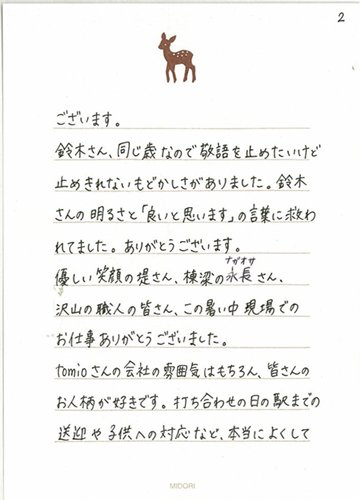 2
ございます。
鈴木さん、同じ歳なので敬語を止めたいけど
止めきれないもどかしさがありました。鈴木
さんの明るさと「良いと思います」の言葉に救わ
れてました。ありがとうございます。
ナガオサ
優しい笑顔の堤さん、棟梁の永長さん、
沢山の職人の皆さん、この暑い中現場での
お仕事ありがとうございました。
tomioさんの会社の雰囲気はもちろん、皆さんの
お人柄が好きです。打ち合わせの日の駅までの
送迎や子供への対応など、本当によくして
MIDORI